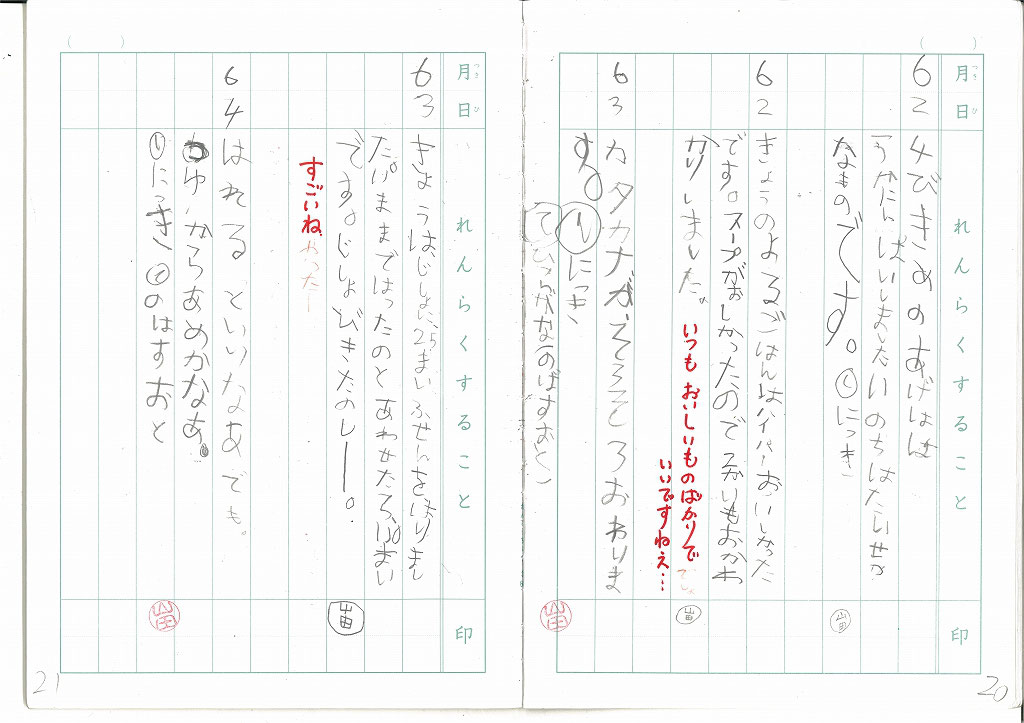 月 日
れんらくすること
印
6 2
4ひきめのあげはは
ぱいしましたいのちはたいせつ
なものです。①にっき
6 2
きょうのよるごはんはハイパーおいしかった
です。スープがおいしかったのでみかいもおかわ
かりしました。
いつもおいしいものばかりで
いいですねえ…
6 3
カタカナがそろそろおわりま
す。①にっき
ひらがな(のばすおと)
20
月 日
れんらくすること
印
6 3
きょうはじしょに25まいふせんをはりまし
た。いままではったのとあわせたら
です。じしょびきたのしー。
すごいね
やったー
6 4
はれるといいなあでも。
つゆ、だからあめかなあ。
①にっき②のはすおと
21